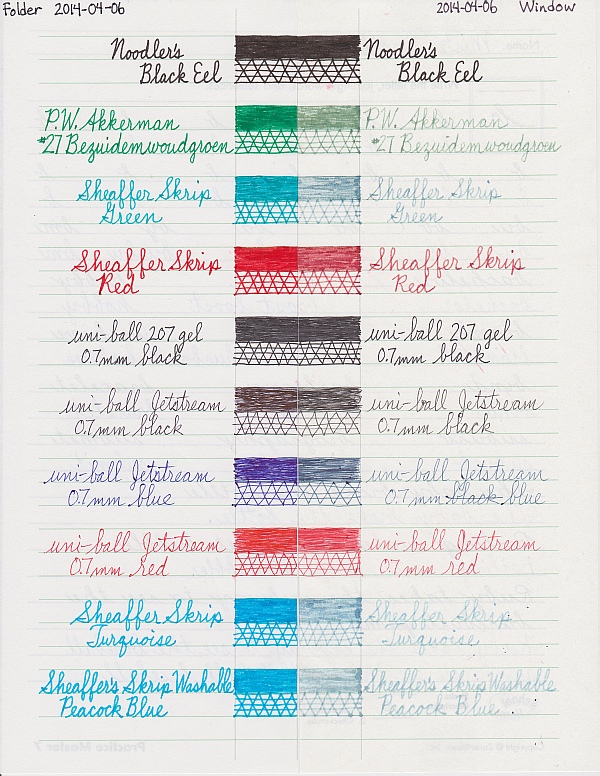 Folder 2014-04-06
2014-04-06 Window
Noodler's
Black Eel
Noodler's
Black Eel
P.W. Akkerman
#27 Bezuidemwoudgroen
P.W. Akkerman
#27 Bezuidemwoudgroen
Sheaffer Skrip
Green
Sheaffer Skrip
Green
Sheaffer Skrip
Red
Sheaffer Skrip
Red
uni-ball 207 gel
0.7mm black
uni-ball 207 gel
0.7mm black
uni-ball Jetstream
0.7mm black
uni-ball Jetstream
0.7mm black
uni-ball Jetstream
0.7mm blue
uni-ball Jetstream
0.7mm black blue
uni-ball Jetstream
0.7mm red
uni-ball Jetstream
0.7mm red
Sheaffer Skrip
Turquoise
Sheaffer Skrip
Turquoise
Sheaffer's Skrip Washable
Peacock Blue
Sheaffer's Skrip Washable
Peacock Blue